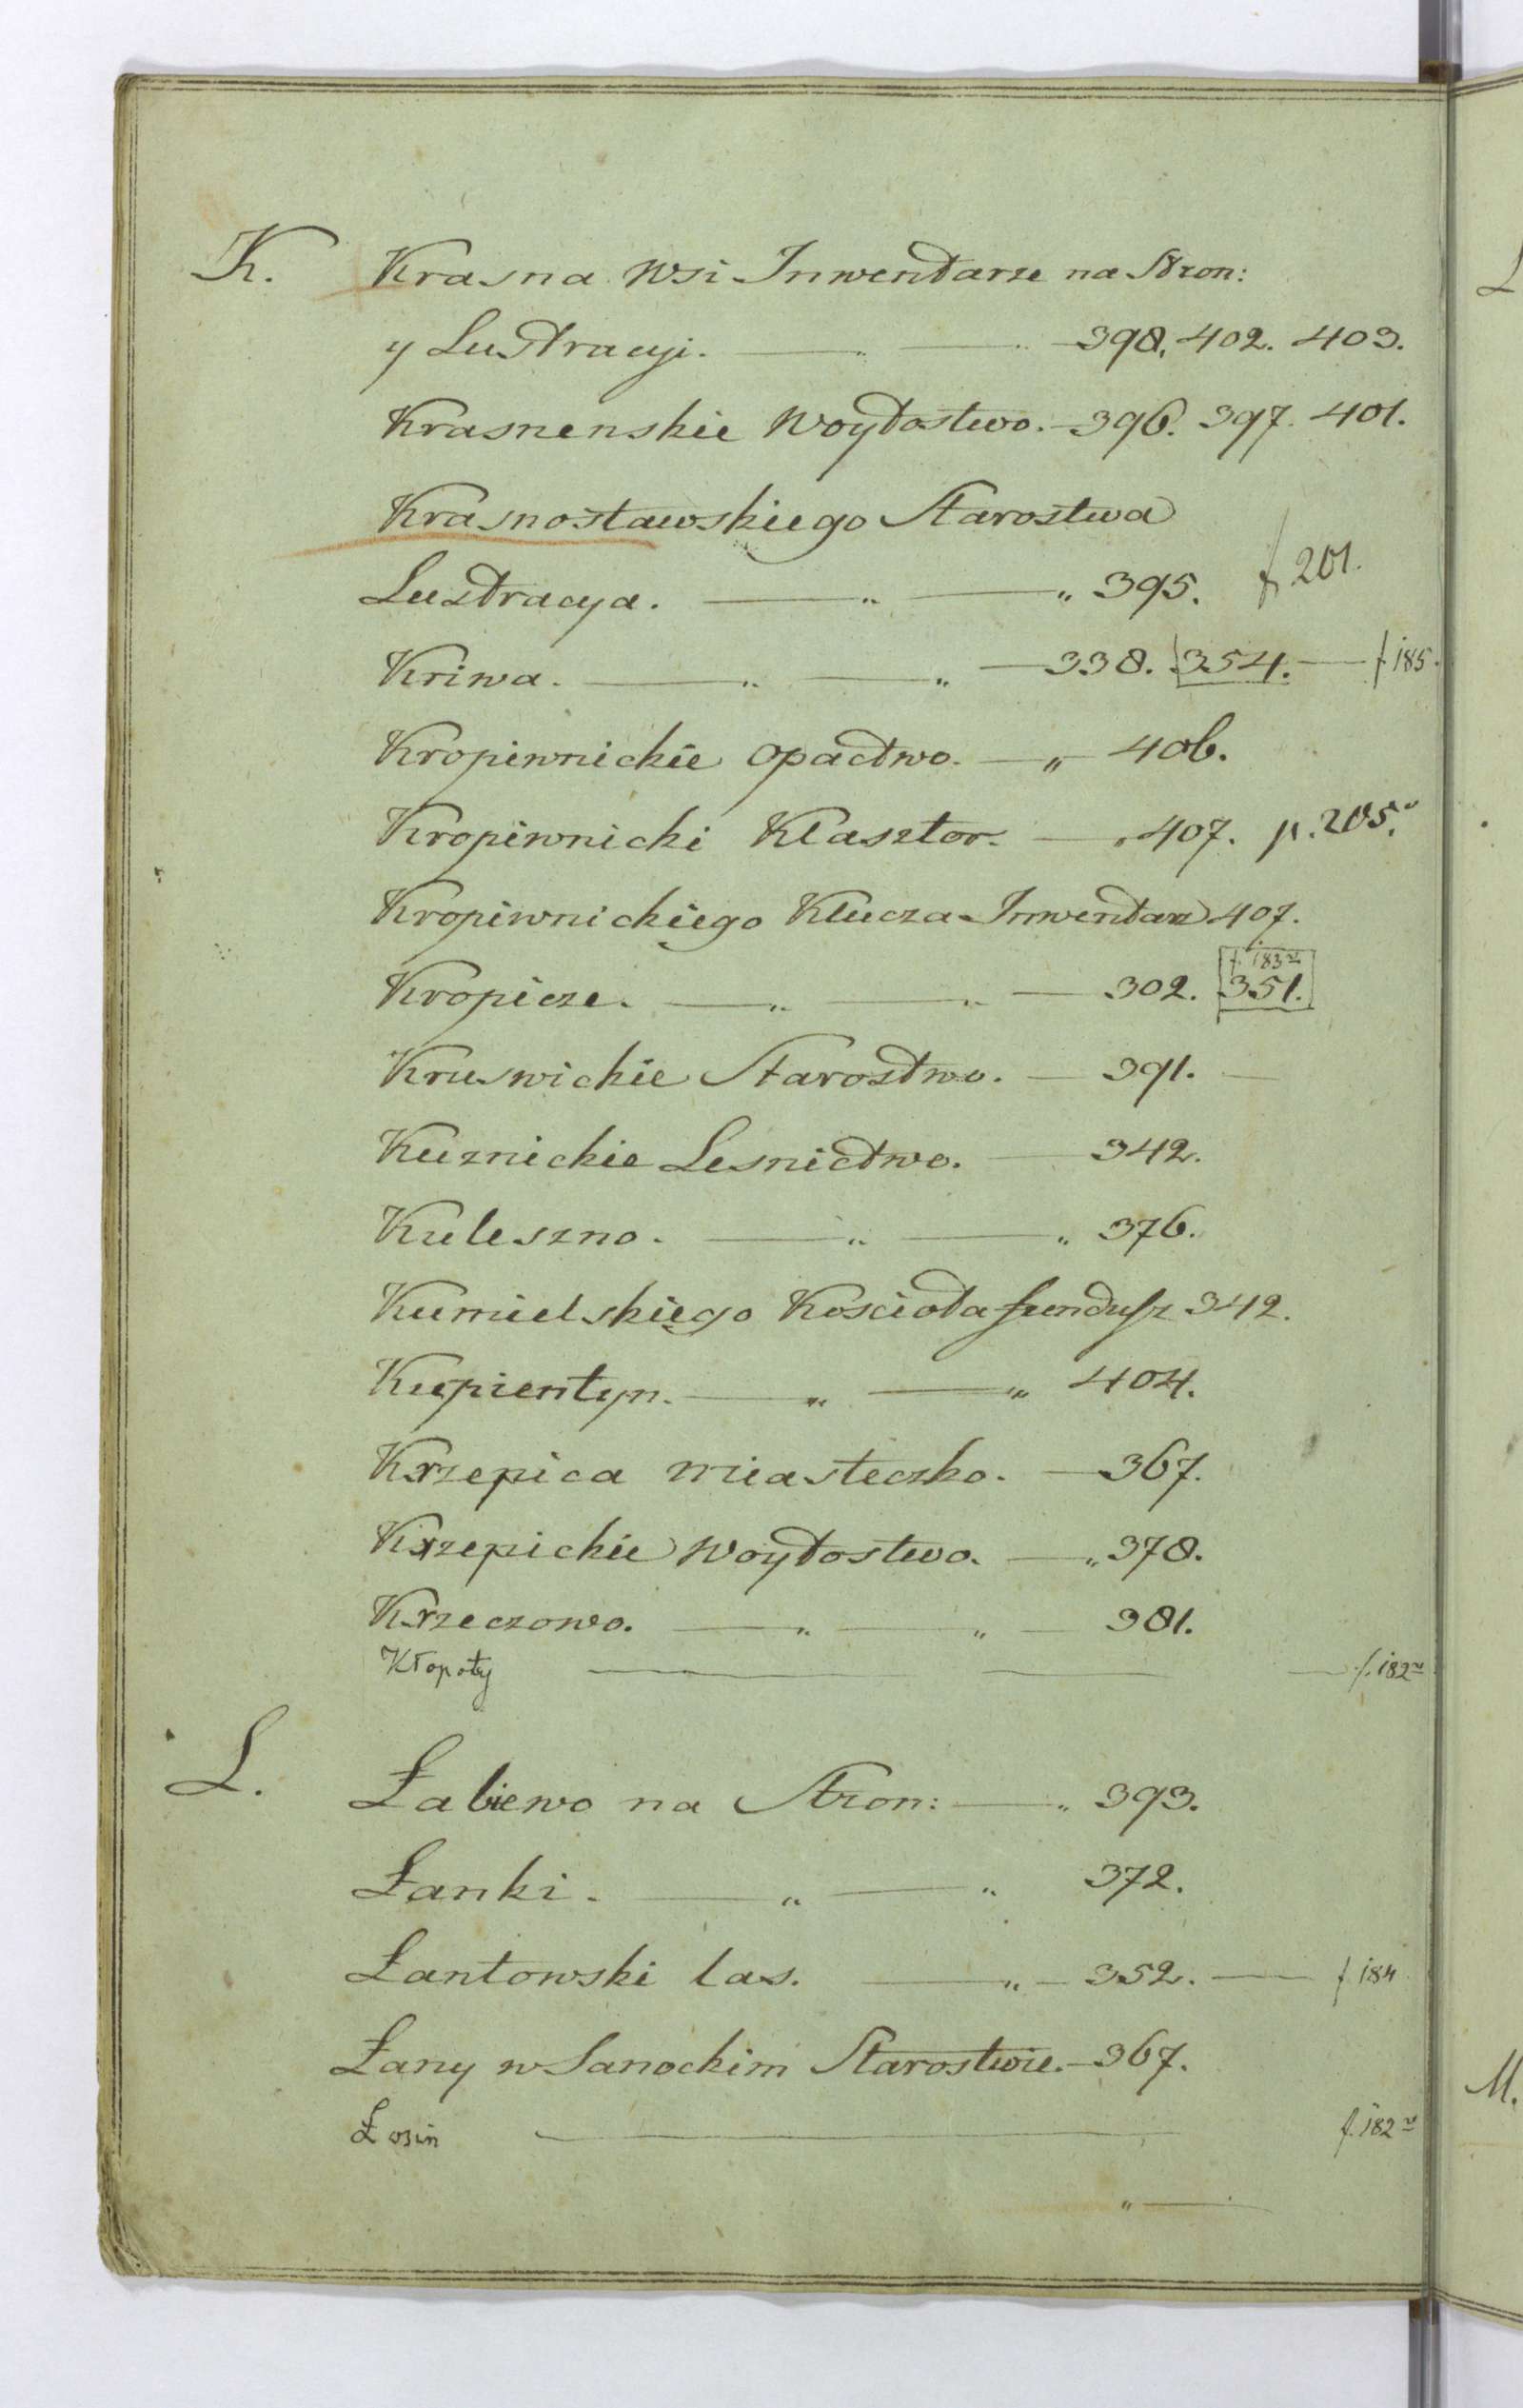 K. Krasna Wsi Inwentarze na Stron:
y Lustracyi. — „ — 398. 402. 403.
Krasnenskie Woytostwo. — 396. 397. 401.
Krasnostawskiego Starostwa
Lustracya. — „ — „ 395. f 201.
Kriwa. — „ — „ — 338. 354. — f. 185.
Kropiwnickie Opactwo. — „ 406.
Kropiwnicki Klasztor. — „ 407. p. 205.v
Kropiwnickiego Klucza Inwentarz 407.
f. 183v
Kropicze. — „ — „ — 302. 351.
Kruswickie Starostwo. — 391. —
Kuznickie Lesnictwo. — 342.
Kuleszno. — „ — „ 376.
Kumielskiego Kościoła fundusz 342.
Kupientyn. — „ — „ 404.
Krzepica miasteczko. — 367.
Krzepickie Woytostwo. — „ 378.
Krzeczowo. — „ — „ — 381.
Kłopoty — — — f. 182v
L. Łabiewo na Stron: — „ 393.
Łanki. — „ — „ 372.
Łantowski las. — „ — 352. — f. 184
Łany w Sanockim Starostwie. — 367.
Łosin — f. 182v
„ —
L
M.